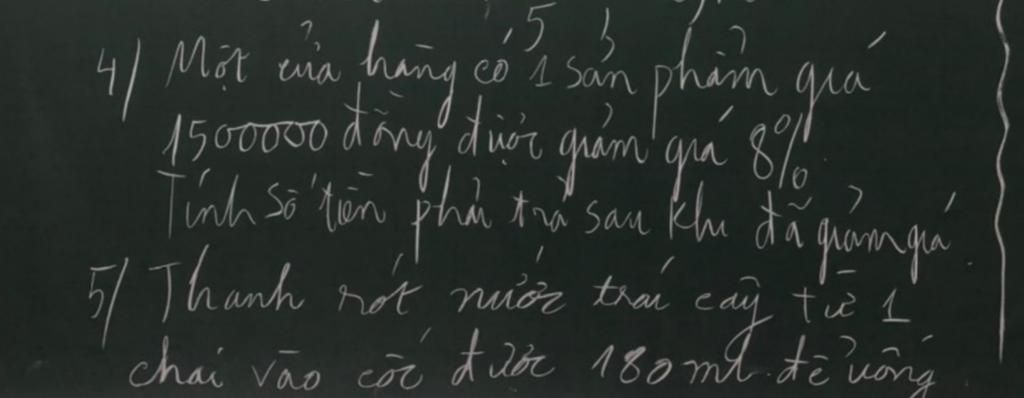 5
4) Một cửa hàng có 1 sản phẩm giá
1500000 đồng được giảm giá 8%.
Tính số tiền phải trả sau khi đã giảm giá.
5/ Thanh rót nước trái cây từ 1
chai vào cốc được 180 ml để uống